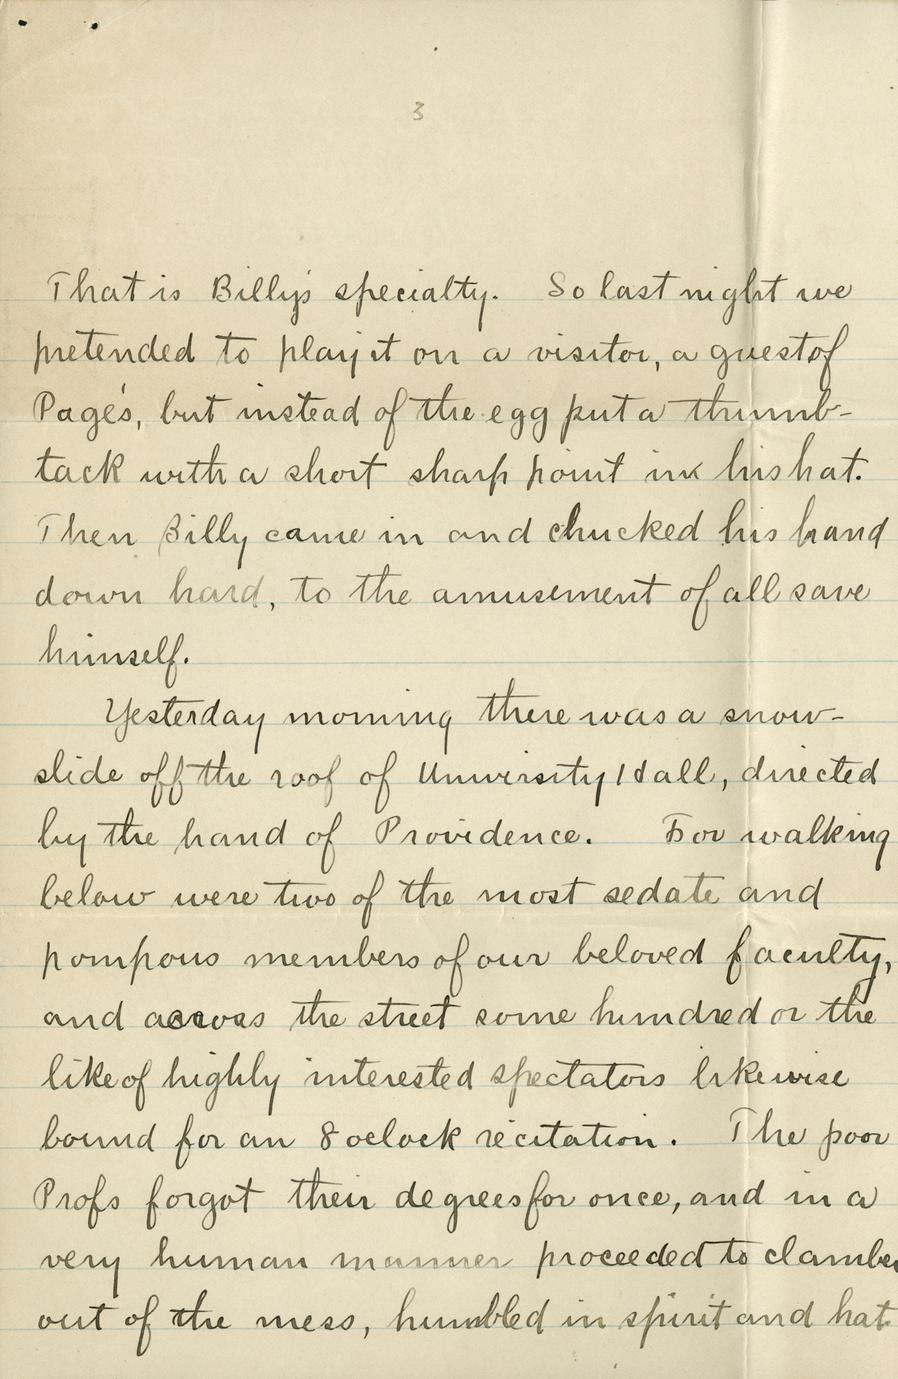 3
That is Billy's specialty. So last night we
pretended to play it on a visitor, a guest of
Page's, but instead of the egg put a thumb-
tack with a short sharp point in his hat.
Then Billy came in and chucked his hand
down hard, to the amusement of all save
himself.
Yesterday morning there was a snow-
slide off the roof of University Hall, directed
by the hand of Providence. For walking
below were two of the most sedate and
pompous members of our beloved faculty,
and across the street some hundred or the
like of highly interested spectators likewise
bound for an 8 oclock recitation. The poor
Profs forgot their degrees for once, and in a
very human manner proceeded to clamber
out of the mess, humbled in spirit and hat.